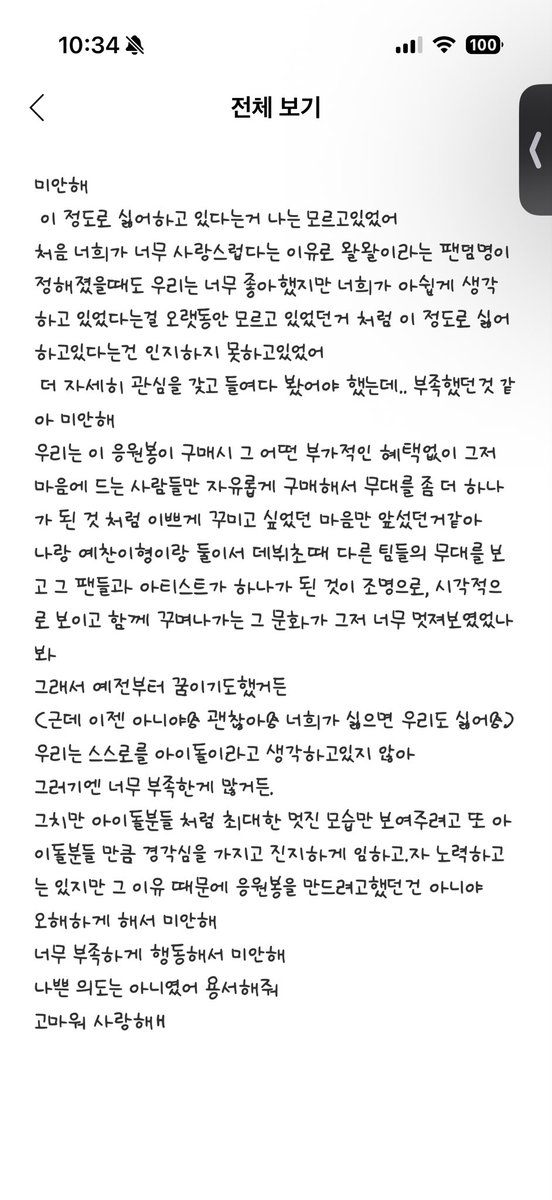 10:34
100
전체 보기
미안해
이 정도로 싫어하고 있다는거 나는 모르고있었어
처음 너희가 너무 사랑스럽다는 이유로 왈왈이라는 팬덤명이
정해졌을때도 우리는 너무 좋아했지만 너희가 아쉽게 생각
하고 있었다는걸 오랫동안 모르고 있었던거 처럼 이 정도로 싫어
하고있다는건 인지하지 못하고있었어
더 자세히 관심을 갖고 들여다 봤어야 했는데.. 부족했던것 같
아 미안해
우리는 이 응원봉이 구매시 그 어떤 부가적인 혜택없이 그저
마음에 드는 사람들만 자유롭게 구매해서 무대를 좀 더 하나
가 된 것 처럼 이쁘게 꾸미고 싶었던 마음만 앞섰던거같아
나랑 예찬이형이랑 둘이서 데뷔초때 다른 팀들의 무대를 보
고 그 팬들과 아티스트가 하나가 된 것이 조명으로, 시각적으
로 보이고 함께 꾸며나가는 그 문화가 그저 너무 멋져보였었나
봐
그래서 예전부터 꿈이기도했거든
(근데 이젠 아니야 괜찮아 너희가 싫으면 우리도 싫어)
우리는 스스로를 아이돌이라고 생각하고있지 않아
그러기엔 너무 부족한게 많거든.
그치만 아이돌분들 처럼 최대한 멋진 모습만 보여주려고 또 아
이돌분들 만큼 경각심을 가지고 진지하게 임하고.자 노력하고
는 있지만 그 이유 때문에 응원봉을 만드려고했던건 아니야
오해하게 해서 미안해
너무 부족하게 행동해서 미안해
나쁜 의도는 아니였어 용서해줘
고마워 사랑해ㅐ